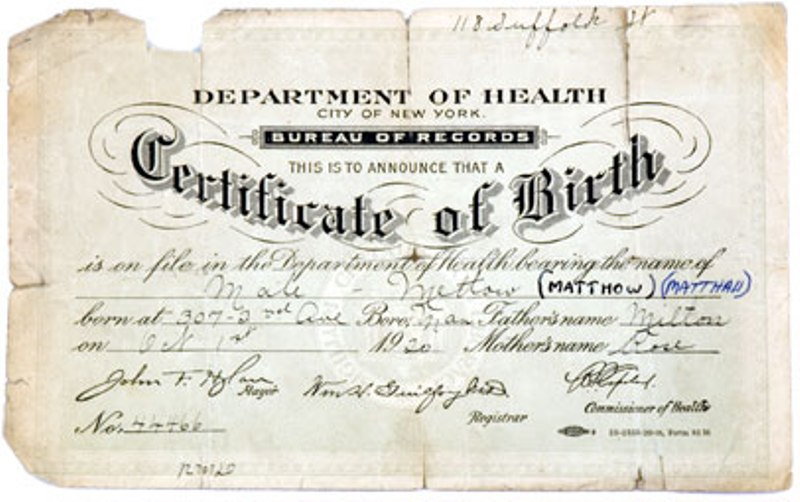 118 Suffolk St
DEPARTMENT OF HEALTH
CITY OF NEW YORK.
BUREAU OF RECORDS
THIS IS TO ANNOUNCE THAT A
Certificate of Birth
is on file in the Department of Health bearing the name of
Male - Metlow (MATTHOW) (MATTHAU)
born at 307-2nd Ave Boro, Man Father's name Milton
on Oct 1st 1920 Mother's name Rose
John F. Hylan
Mayor
Wm H. Guilfoy
Registrar
Commissioner of Health
No. 44466